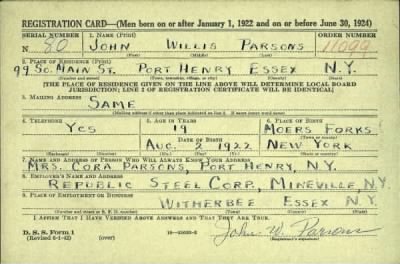 REGISTRATION CARD—(Men born on or after January 1, 1922 and on or before June 30, 1924)
SERIAL NUMBER 1. NAME (Print) ORDER NUMBER
N 80 JOHN WILLIS PARSONS 11099
2. PLACE OF RESIDENCE (Print)
99 SO. MAIN ST. PORT HENRY ESSEX N.Y.
(Number and street) (Town, township, village, or city) (County) (State)
[THE PLACE OF RESIDENCE GIVEN ON THE LINE ABOVE WILL DETERMINE LOCAL BOARD
JURISDICTION; LINE 2 OF REGISTRATION CERTIFICATE WILL BE IDENTICAL]
3. MAILING ADDRESS
SAME
[Mailing address if other than place indicated on line 2. If same insert word same]
4. TELEPHONE 5. AGE IN YEARS 6. PLACE OF BIRTH
YES 19 MOERS FORKS
DATE OF BIRTH
AUG. 2 1922 NEW YORK
7. NAME AND ADDRESS OF PERSON WHO WILL ALWAYS KNOW YOUR ADDRESS
MRS. CORA PARSONS, PORT HENRY, N.Y.
8. EMPLOYER'S NAME AND ADDRESS
REPUBLIC STEEL CORP., MINEVILLE, N.Y.
9. PLACE OF EMPLOYMENT OR BUSINESS
WITHERBEE ESSEX N.Y.
(Number and street or R. F. D. number) (Town) (County) (State)
I AFFIRM THAT I HAVE VERIFIED ABOVE ANSWERS AND THAT THEY ARE TRUE.
D. S. S. Form 1
(over)
John W. Parsons
(Registrant's signature)